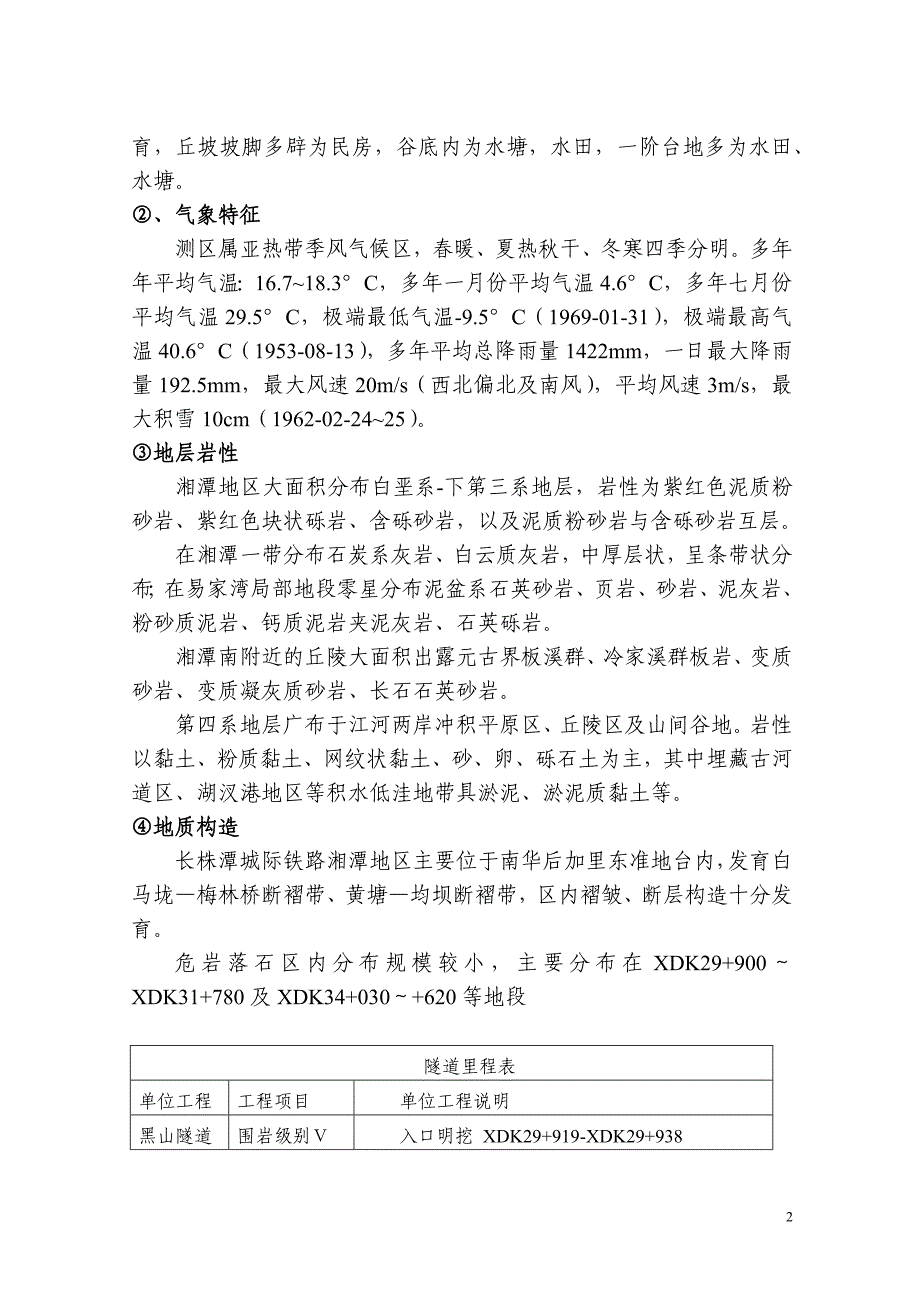 育，丘坡坡脚多辟为民房，谷底内为水塘，水田，一阶台地多为水田、
水塘。
②、气象特征
测区属亚热带季风气候区，春暖、夏热秋干、冬寒四季分明。多年
年平均气温：16.7~18.3°C，多年一月份平均气温 4.6°C，多年七月份
平均气温 29.5°C，极端最低气温-9.5°C（1969-01-31），极端最高气
温 40.6°C（1953-08-13），多年平均总降雨量 1422mm，一日最大降雨
量 192.5mm，最大风速 20m/s（西北偏北及南风），平均风速 3m/s，最
大积雪 10cm（1962-02-24~25）。
③地层岩性
湘潭地区大面积分布白垩系-下第三系地层，岩性为紫红色泥质粉
砂岩、紫红色块状砾岩、含砾砂岩，以及泥质粉砂岩与含砾砂岩互层。
在湘潭一带分布石炭系灰岩、白云质灰岩，中厚层状，呈条带状分
布；在易家湾局部地段零星分布泥盆系石英砂岩、页岩、砂岩、泥灰岩、
粉砂质泥岩、钙质泥岩夹泥灰岩、石英砾岩。
湘潭南附近的丘陵大面积出露元古界板溪群、冷家溪群板岩、变质
砂岩、变质凝灰质砂岩、长石石英砂岩。
第四系地层广布于江河两岸冲积平原区、丘陵区及山间谷地。岩性
以黏土、粉质黏土、网纹状黏土、砂、卵、砾石土为主，其中埋藏古河
道区、湖汊港地区等积水低洼地带具淤泥、淤泥质黏土等。
④地质构造
长株潭城际铁路湘潭地区主要位于南华后加里东准地台内，发育白
马垅—梅林桥断褶带、黄塘—均坝断褶带，区内褶皱、断层构造十分发
育。
危岩落石区内分布规模较小，主要分布在 XDK29+900～
XDK31+780 及 XDK34+030～+620 等地段
隧道里程表
单位工程 工程项目 单位工程说明
黑山隧道 围岩级别Ⅴ 入口明挖 XDK29+919-XDK29+938
2